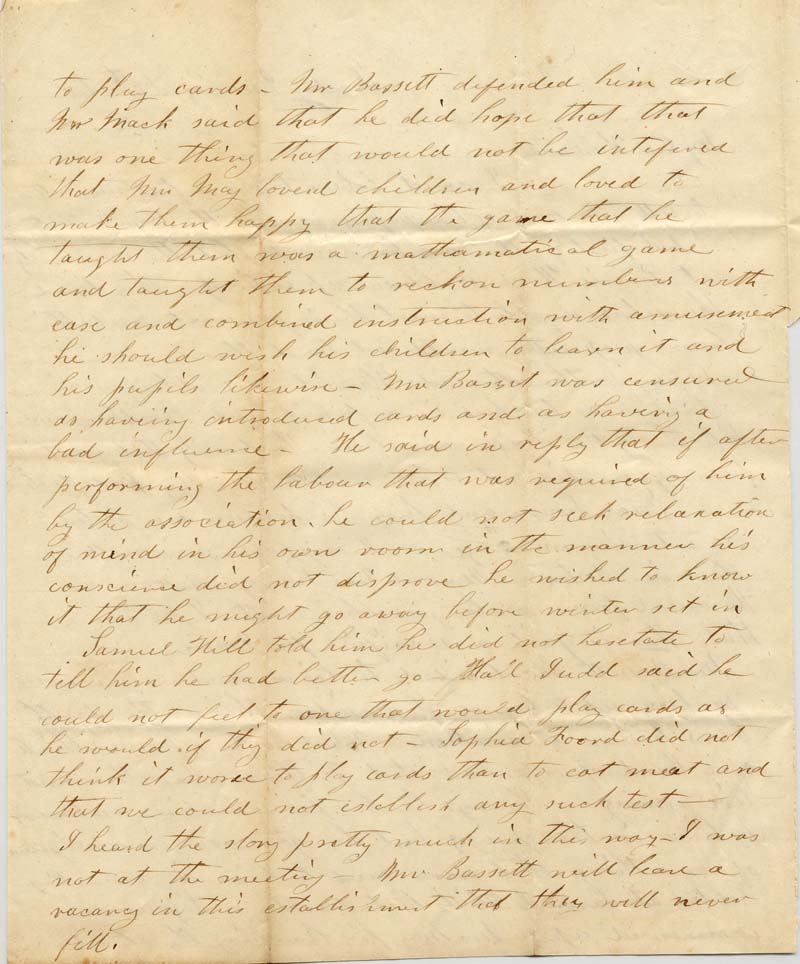 to play cards – Mr Bassett defended him and
Mr Mack said that he did hope that that
was one thing that would not be intefered
that Mr May loved children and loved to
make them happy that the game that he
taught them was a mathamatical game
and taught them to reckon numbers with
ease and combined instruction with amusement
he should wish his children to learn it and
his pupils likewise – Mr Bassit was censured
as having introduced cards and as having a
bad influence – He said in reply that if after
performing the labour that was required of him
by the association he could not seek relaxation
of mind in his own room in the manner his
conscience did not disprove he wished to know
it that he might go away before winter set in
Samuel Hill told him he did not hesetate to
tell him he had better go – Hall Judd said he
could not feel to one that would play cards as
he would if they did not – Sophia Foord did not
think it worse to play cards than to eat meat and
that we could not establish any such test –
I heard the story pretty much in this way – I was
not at the meeting – Mr Bassett will leave a
vacancy in this establishment that they will never
fill.